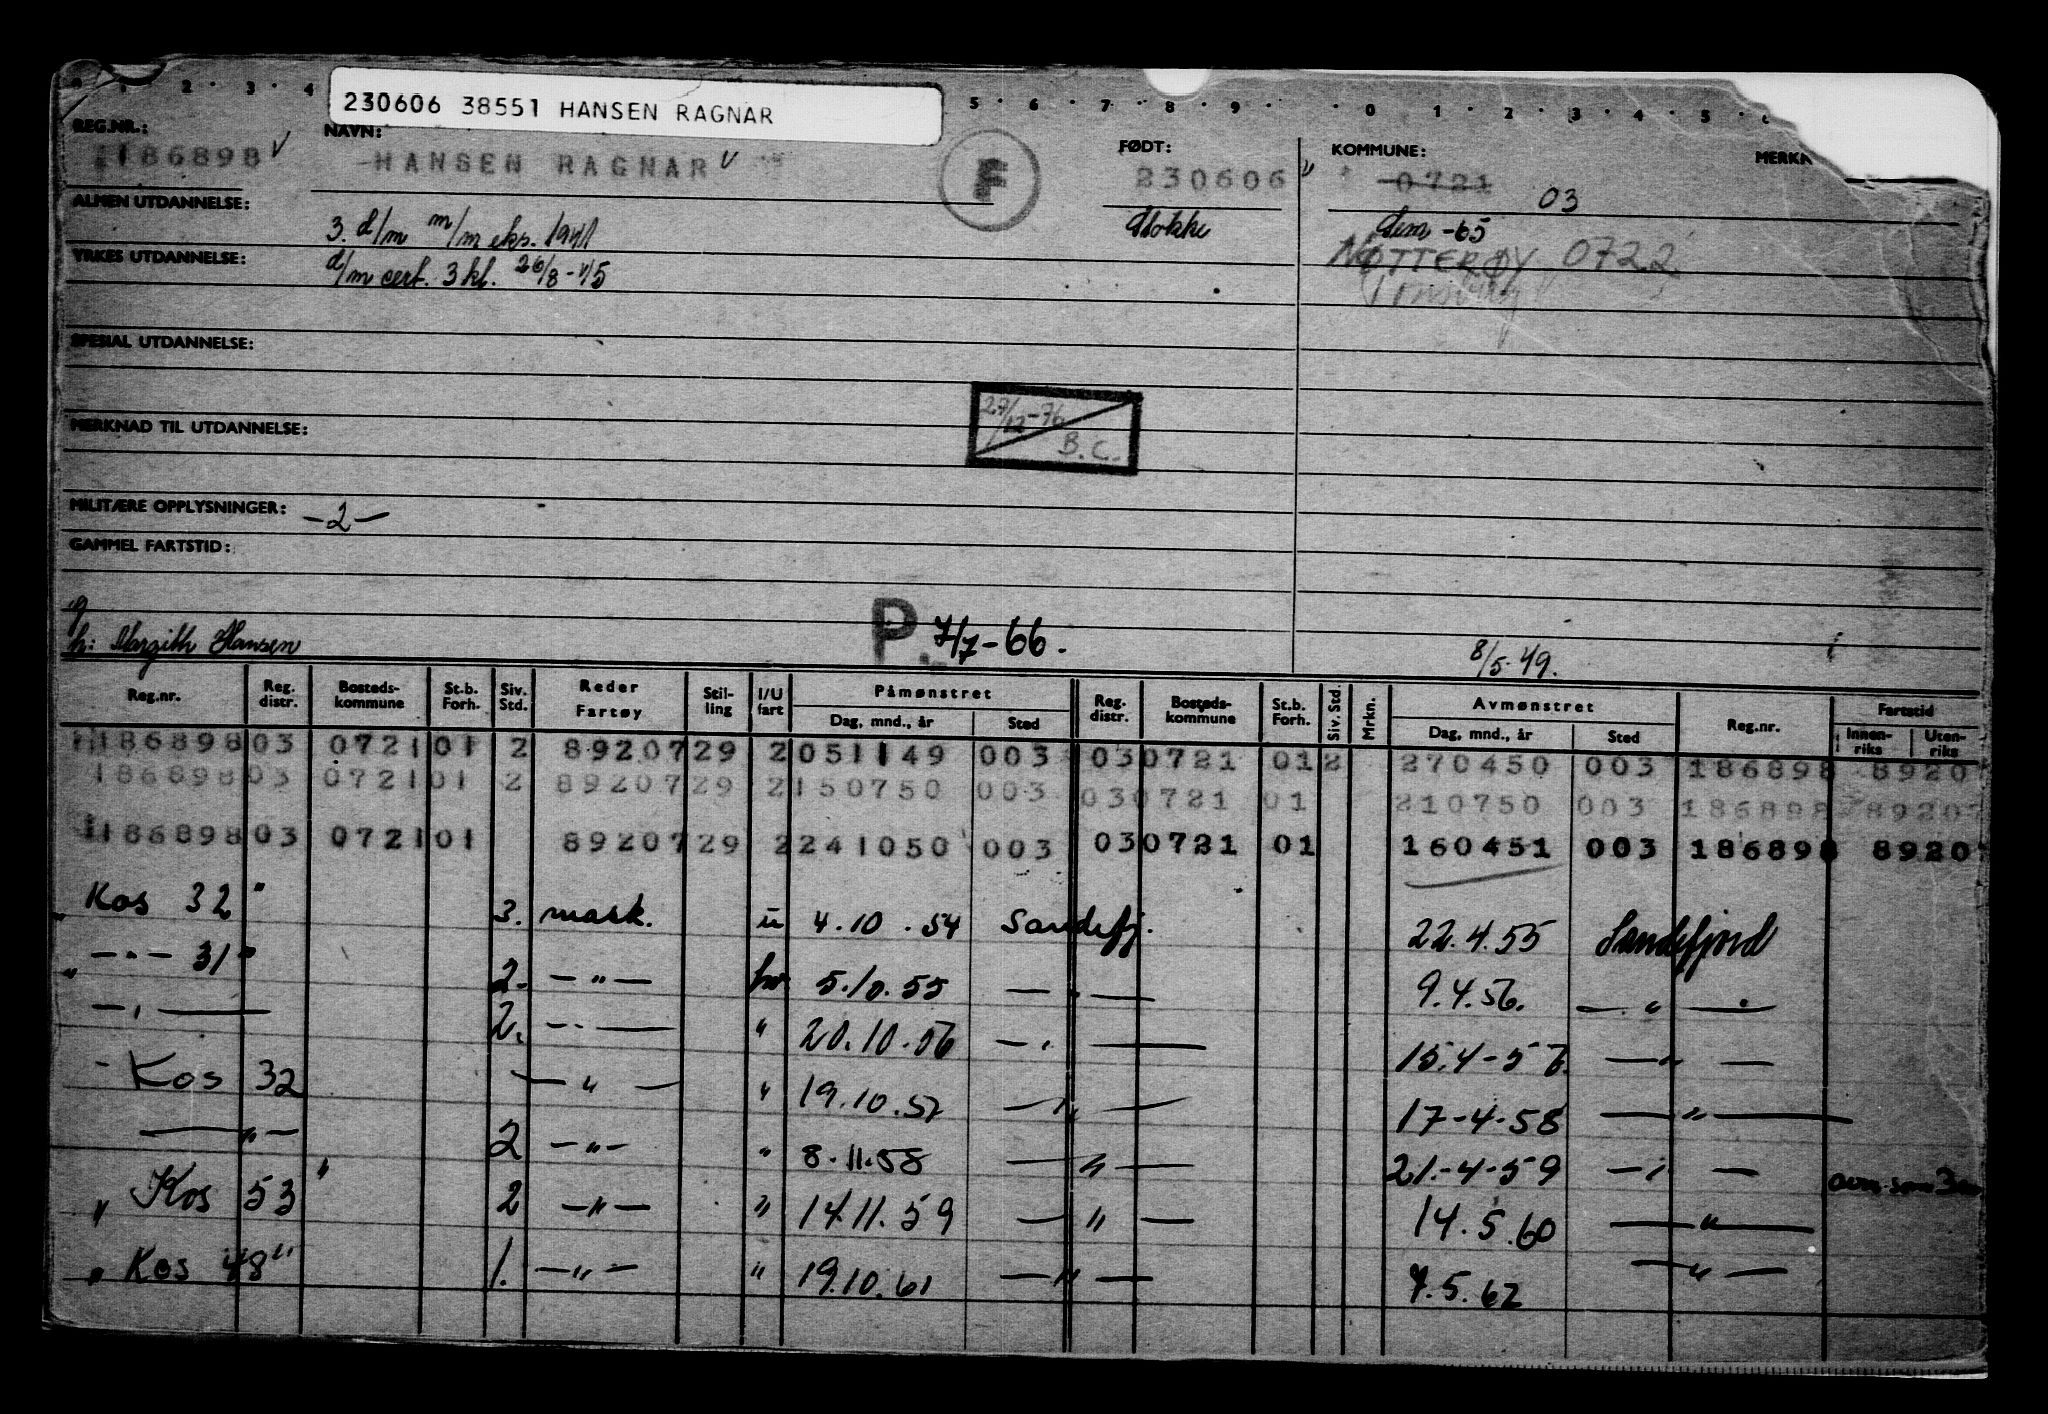 230606 38551 HANSEN RAGNAR
REG.NR.: NAVN: FØDT: KOMMUNE: MERKN
186898 HANSEN RAGNAR F 230606 0721 03
ALMEN UTDANNELSE: 3. d/m m/m eks. 1941 Stokke Sem -65
YRKES UTDANNELSE: d/m cert. 3 kl. 26/8-45 NØTTERØY 0722
SPESIAL UTDANNELSE:
27/12-76 B.C.
MERKNAD TIL UTDANNELSE:
MILITÆRE OPPLYSNINGER: -2-
GAMMEL FARTSTID:
P. 7/7-66.
h: Margith Hansen 8/5.49.
Reg.nr. Reg. distr. Bosteds-kommune St.b. Forh. Siv. Std. Reder Fartøy Stil-ling I/U fart Påmønstret Dag, mnd., år Sted Reg. distr. Bosteds-kommune St.b. Forh. Siv. Std. Mrkn. Avmønstret Dag, mnd., år Sted Reg.nr. Fartstid Innen-riks Uten-riks
186898 03 0721 01 2 89207 29 2 051149 003 03 0721 01 2 270450 003 186898 8920
186898 03 0721 01 2 89207 29 2 150750 003 03 0721 01 210750 003 186898 89207
186898 03 0721 01 89207 29 2 241050 003 03 0721 01 160451 003 186898 8920
" Kos 32 " 3. mask. u 4.10.54 Sandefj. 22.4.55 Sandefjord
" -"- 31 " 2. -"- hv 5.10.55 -"- 9.4.56. -"-
-"- 2. -"- " 20.10.56 -"- 15.4-57 -"-
- Kos 32 -"- " 19.10.57 -"- 17-4-58 -"-
-"- 2 -"- " 8.11.58 -"- 21-4-59 -"-
" Kos 53 " 2 -"- " 14.11.59 -"- 14.5.60 -"-
" Kos 48 " 1. -"- " 19.10.61 -"- 7.5.62 -"-